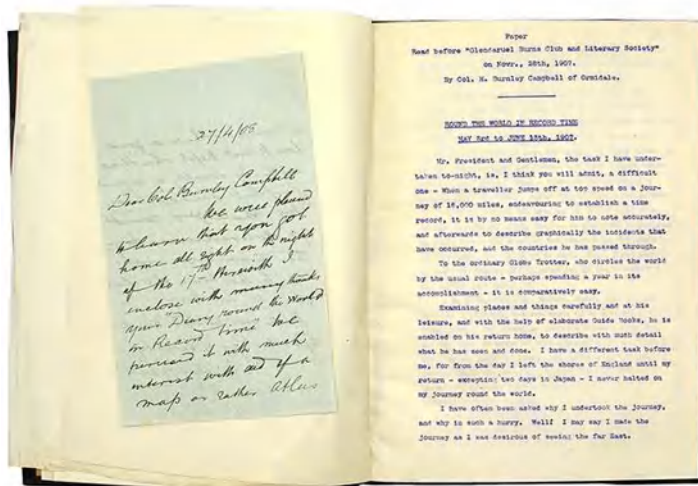 27/4/08
Dear Col. Burnley Campbell
We were pleased
to learn that you got
home all right on the night
of the 17th Herewith I
enclose with many thanks
your Diary round the World
in Record time" We
perused it with much
interest with aid of a
map or rather Atlas
Paper
Read before "Glendaruel Burns Club and Literary Society"
on Novr., 28th, 1907.
By Col. H. Burnley Campbell of Ormidale.
ROUND THE WORLD IN RECORD TIME
MAY 3rd to JUNE 13th, 1907.
Mr. President and Gentlemen, the task I have under-
taken to-night, is, I think you will admit, a difficult
one - When a traveller jumps off at top speed on a jour-
ney of 18,000 miles, endeavouring to establish a time
record, it is by no means easy for him to note accurately,
and afterwards to describe graphically the incidents that
have occurred, and the countries he has passed through.
To the ordinary Globe Trotter, who circles the world
by the usual route - perhaps spending a year in its
accomplishment - it is comparatively easy.
Examining places and things carefully and at his
leisure, and with the help of elaborate Guide Books, he is
enabled on his return home, to describe with much detail
what he has seen and done. I have a different task before
me, for from the day I left the shores of England until my
return - excepting two days in Japan - I never halted on
my journey round the world.
I have often been asked why I undertook the journey,
and why in such a hurry. Well! I may say I made the
journey as I was desirous of seeing the far East.